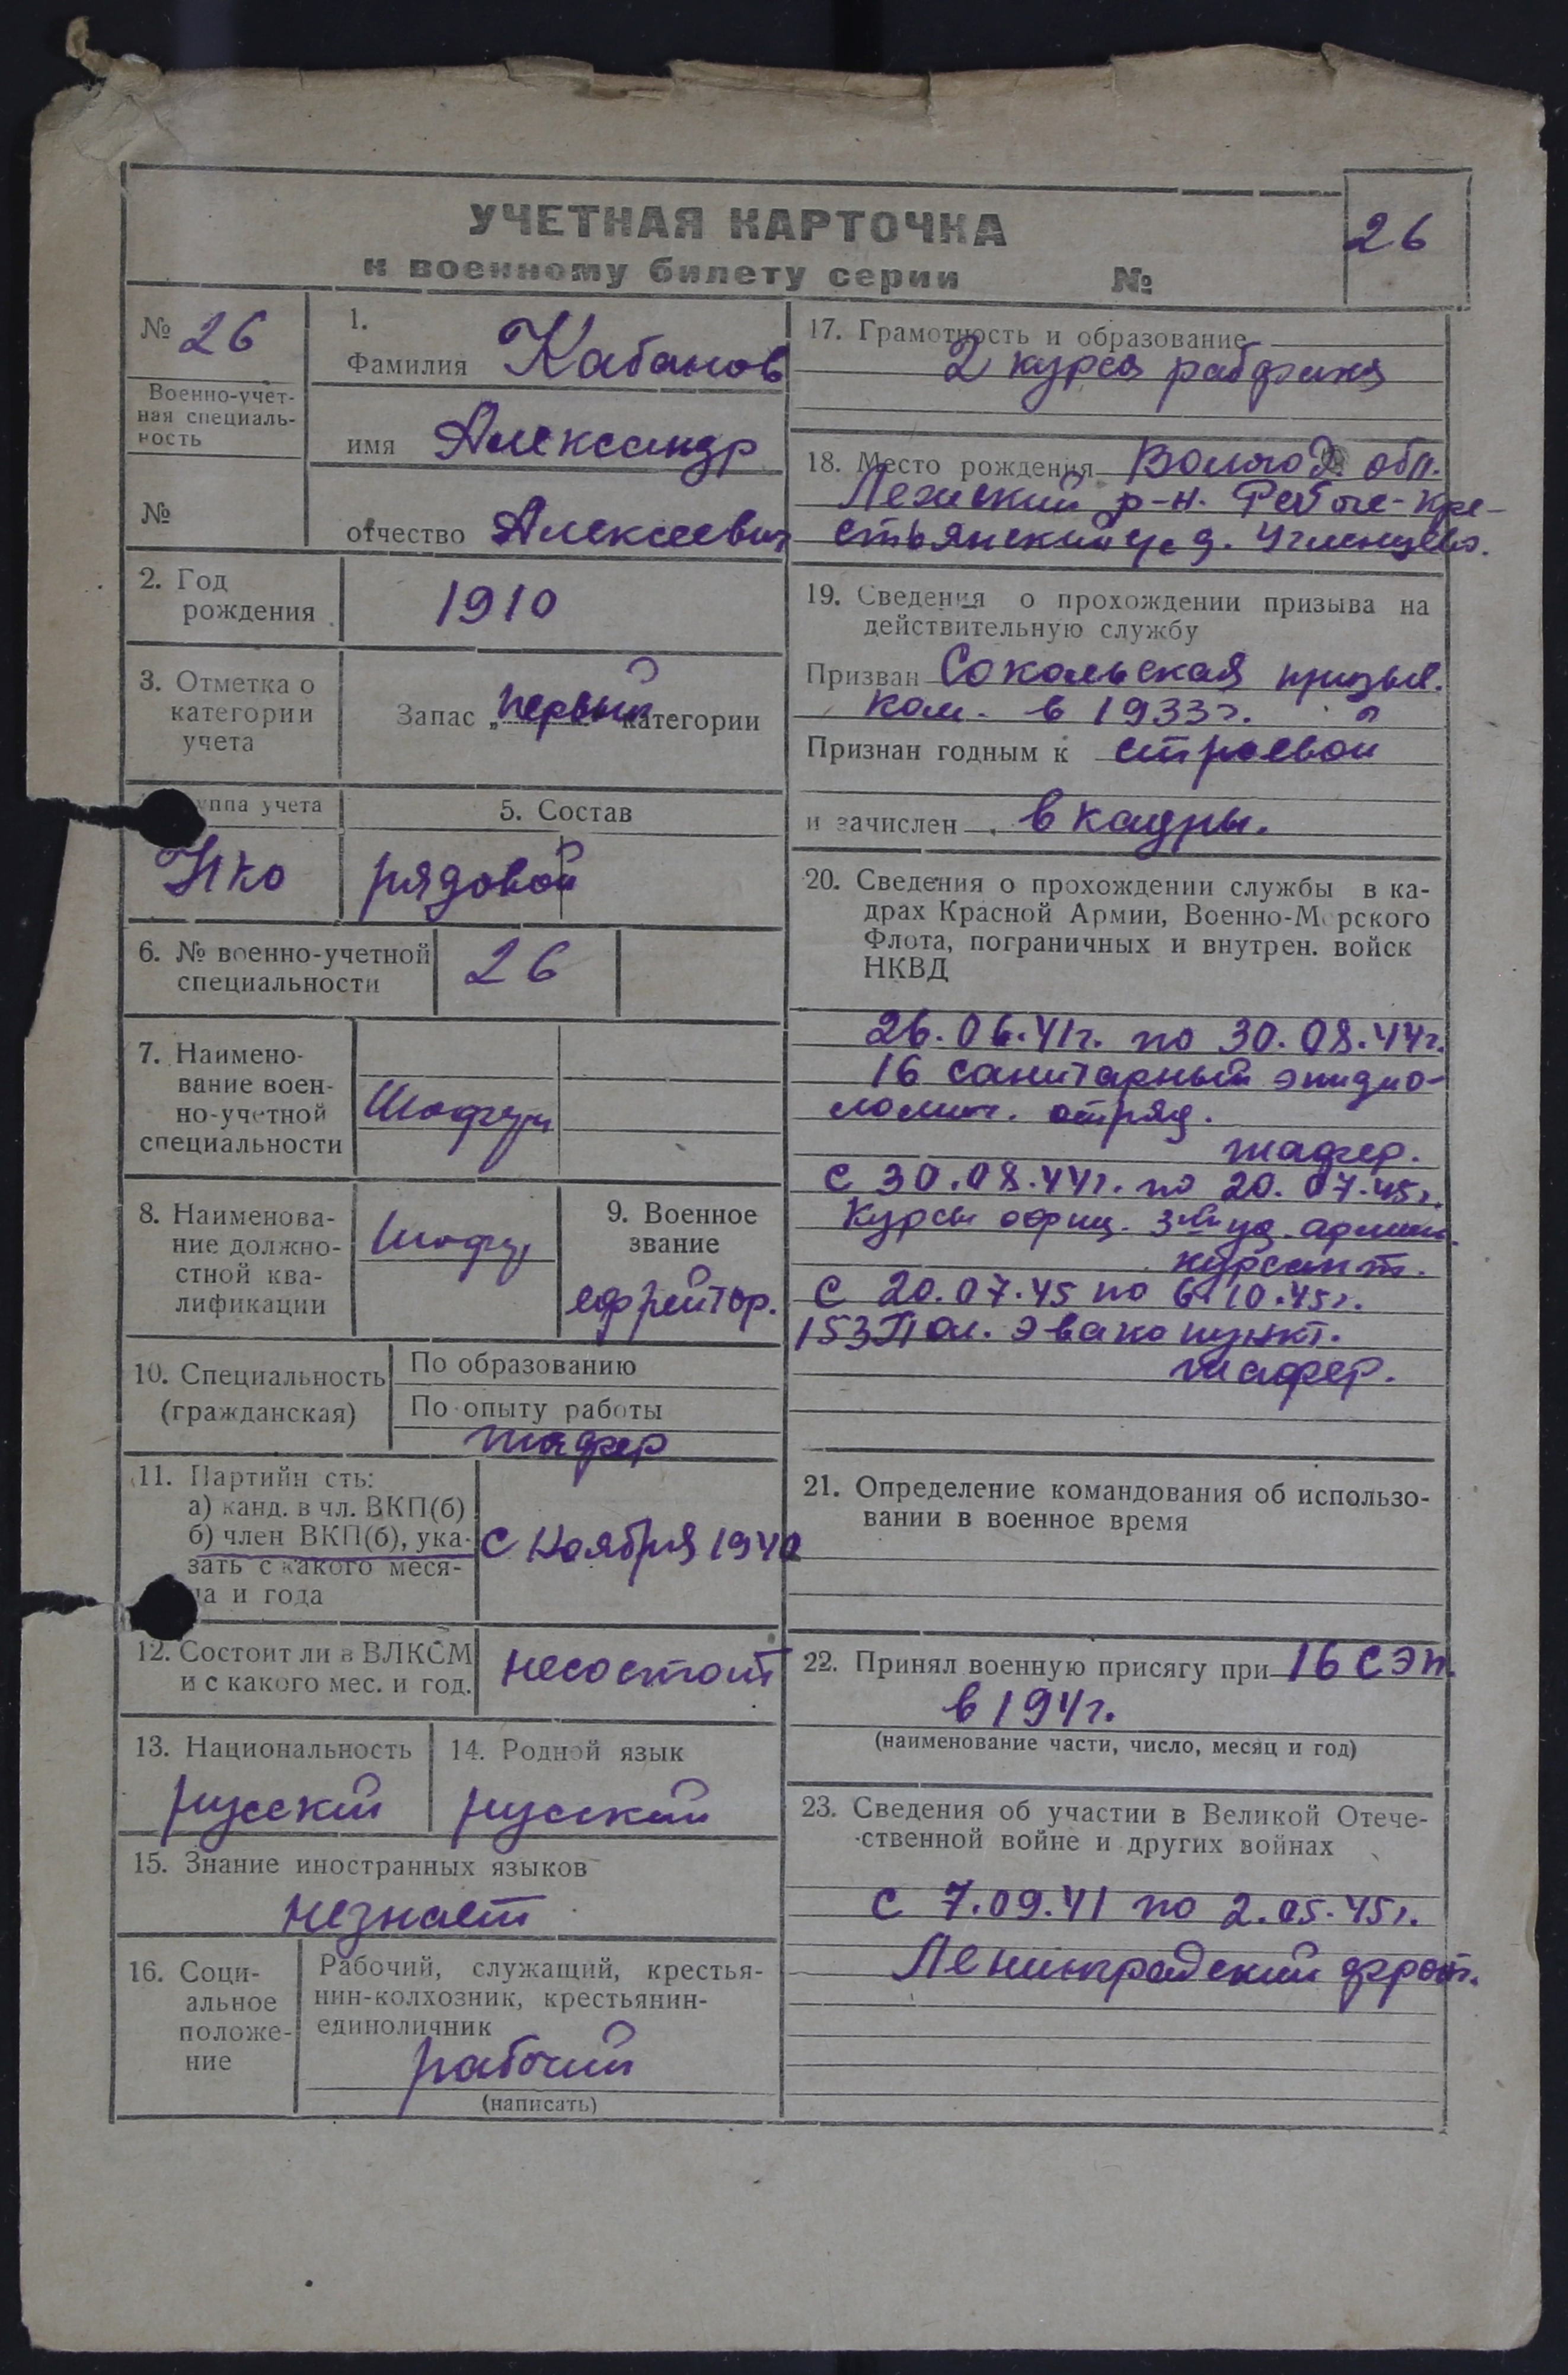 УЧЕТНАЯ КАРТОЧКА
к военному билету серии №
26
№ 26
Военно-учет-
ная специаль-
ность
№
1.
Фамилия Кабанов
имя Александр
отчество Алексеевич
2. Год
рождения
1910
3. Отметка о
категории
учета
Запас „первой категории
уппа учета
НКО
5. Состав
рядовой
6. № военно-учетной
специальности
26
7. Наимено-
вание воен-
но-учетной
специальности
Шофер
8. Наименова-
ние должно-
стной ква-
лификации
Шофер
9. Военное
звание
ефрейтор.
10. Специальность
(гражданская)
По образованию
По опыту работы
шофер
11. Партийн сть:
а) канд. в чл. ВКП(б)
б) член ВКП(б), ука-
зать с какого меся-
ца и года
с Ноября 1942
12. Состоит ли в ВЛКСМ
и с какого мес. и год.
несостоит
13. Национальность
русский
14. Родной язык
русский
15. Знание иностранных языков
незнает
16. Соци-
альное
положе-
ние
Рабочий, служащий, крестья-
нин-колхозник, крестьянин-
единоличник
рабочий
(написать)
17. Грамотность и образование
2 курса рабфака
18. Место рождения Волого обл.
Лежский р-н. Рабоче-Кре-
стьянский с д.
19. Сведения о прохождении призыва на
действительную службу
Призван Сокольская призыв.
ком. в 1933г.
Признан годным к строевой
и зачислен в кадры.
20. Сведения о прохождении службы в ка-
драх Красной Армии, Военно-Морского
Флота, пограничных и внутрен. войск
НКВД
26.06.41г. по 30.08.44г.
16 санитарный эпидио-
логич. отряд.
шофер.
с 30.08.44г. по 20.07.45г.
Курсы офиц. 3ей уд. армии.
курсант.
с 20.07.45 по 6.10.45г.
153 Пол. Эвако пункт.
шофер.
21. Определение командования об использо-
вании в военное время
22. Принял военную присягу при 16 СЭп.
в 194г.
(наименование части, число, месяц и год)
23. Сведения об участии в Великой Отече-
ственной войне и других войнах
с 7.09.41 по 2.05.45г.
Ленинградский фронт.